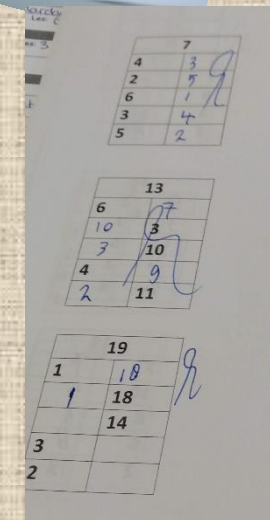 7
4 3
2 5
6 1
3 4
5 2
13
6 7
10 3
3 10
4 9
2 11
19
1 18
1 18
14
3
2